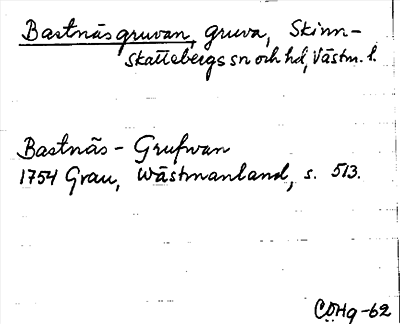 Bastnäsgruvan, gruva, Skinn-
skattebergs sn och hd, Västm. l.
Bastnäs - Grufwan
1754 Grau, Wästmanland, s. 513.
CÖHg-62